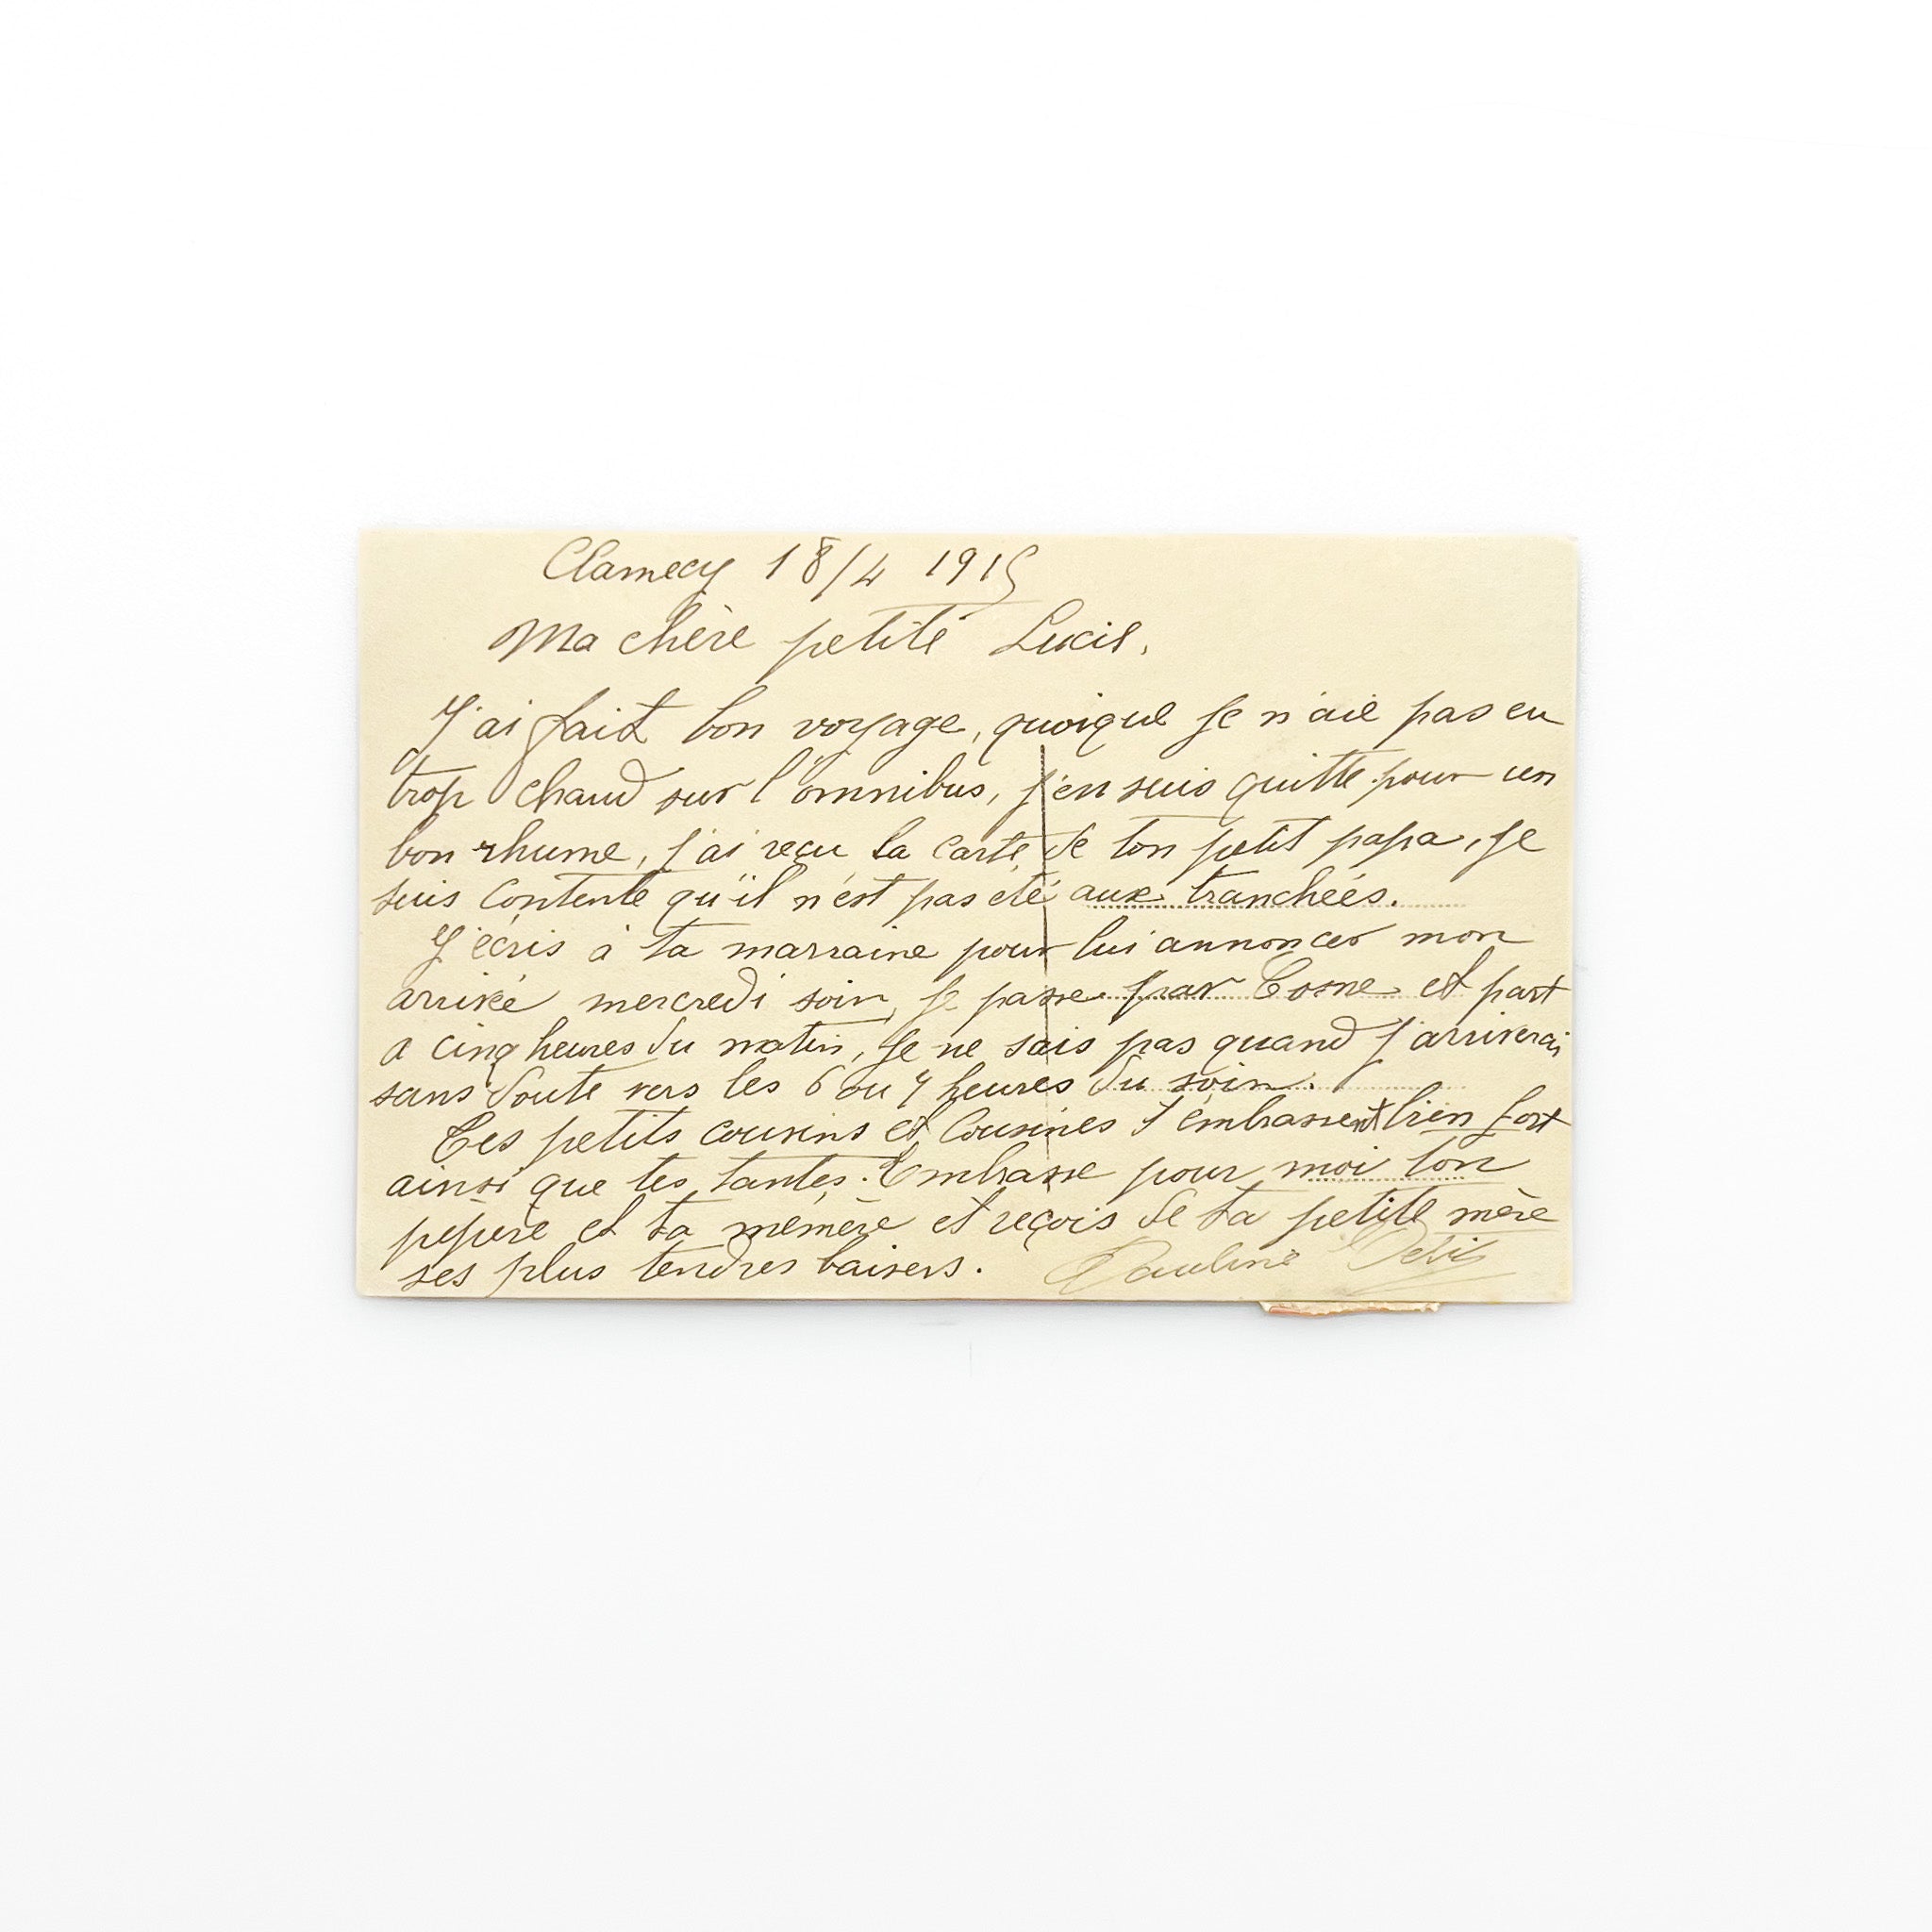 Clamecy 18/4 1915
Ma chère petite Lucie,
J'ai fait bon voyage, quoique je n'aie pas eu
trop chaud sur l'omnibus, j'en suis quitte pour un
bon rhume, j'ai reçu la carte de ton petit papa, je
suis contente qu'il n'est pas été aux tranchées.
J'écris à ta marraine pour lui annoncer mon
arrivée mercredi soir, je passe par Cosne et part
a cinq heures du matin, je ne sais pas quand j'arriverai
sans doute vers les 6 ou 7 heures du soir.
Tes petits cousins et cousines t'embrassent bien fort
ainsi que tes tantes. Embrasse pour moi ton
pepère et ta memère et reçois de ta petite mère
ses plus tendres baisers. Pauline